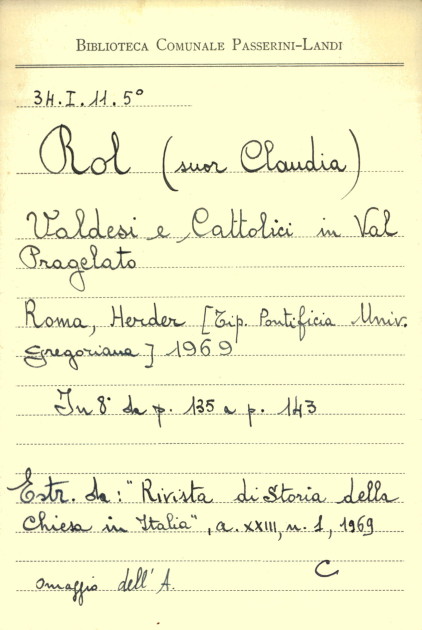 BIBLIOTECA COMUNALE PASSERINI-LANDI
34.I.11.5°
Rol (suor Claudia)
Valdesi e Cattolici in Val
Pragelato
Roma, Herder [Tip. Pontificia Univ.
Gregoriana] 1969
In 8° da p. 135 a p. 143
Estr. da: "Rivista di Storia della
Chiesa in Italia", a. XXIII, n. 1, 1969
C
omaggio dell'A.